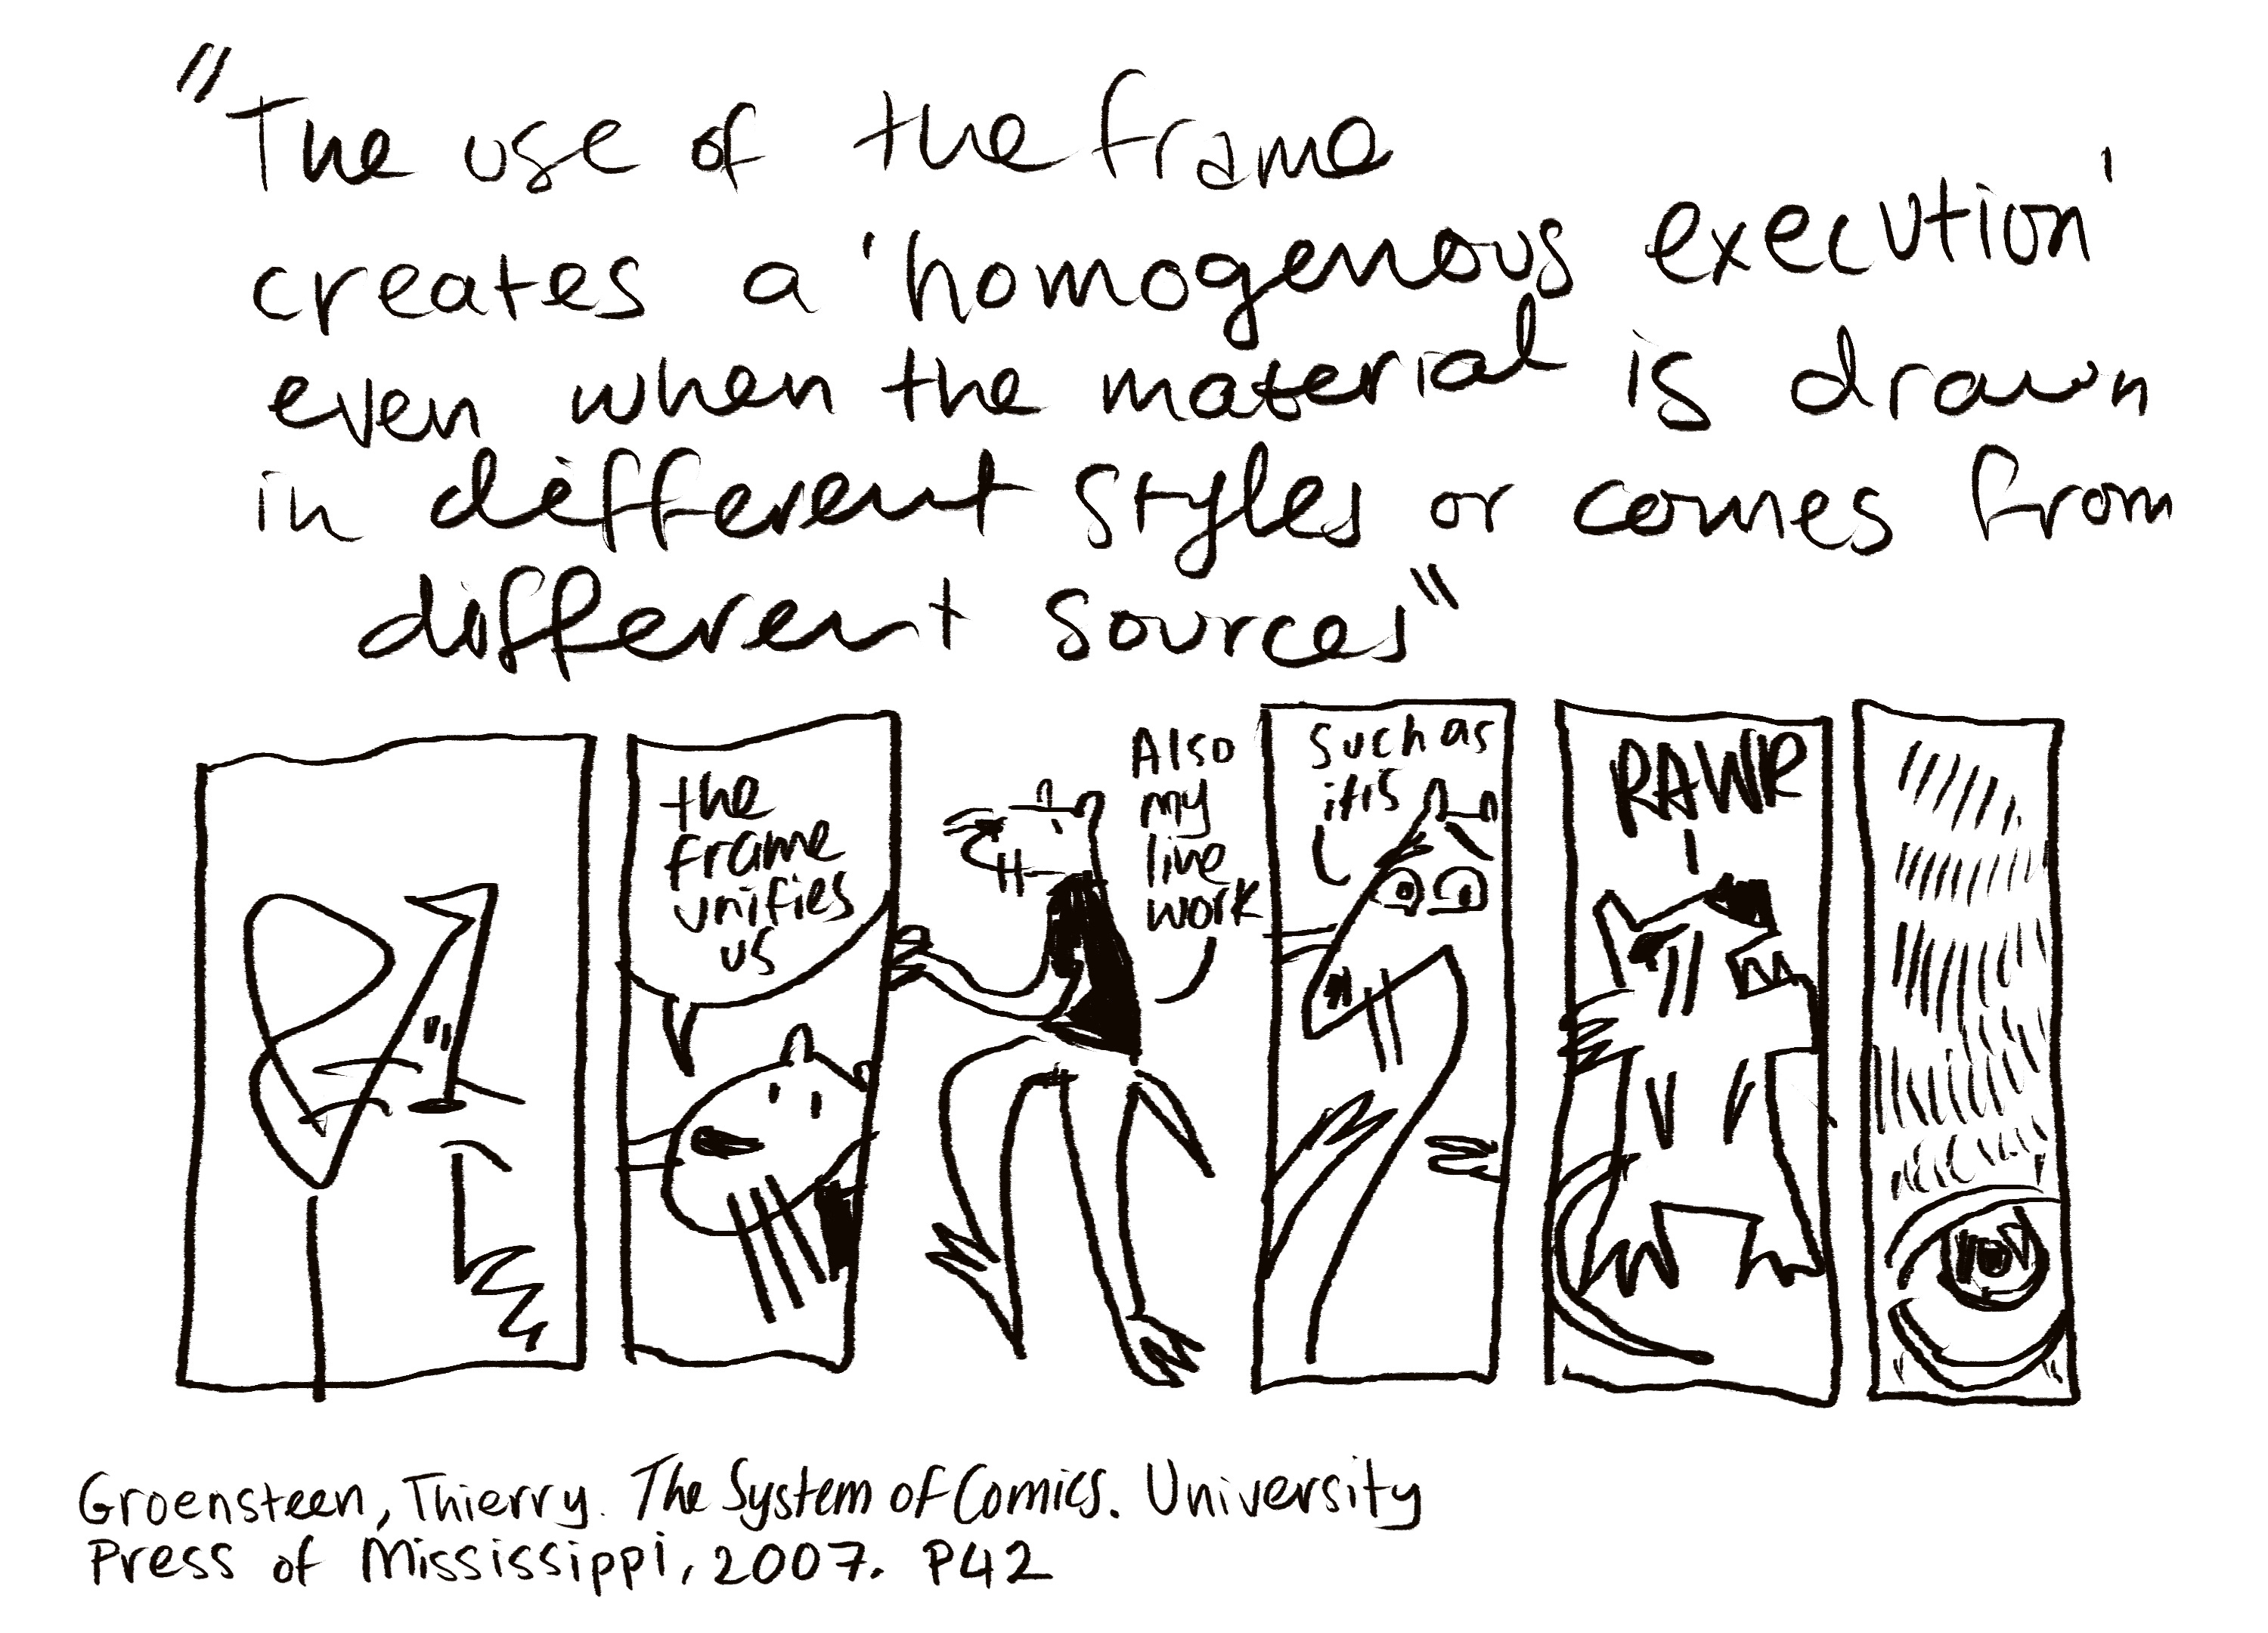 "The use of the frame
creates a 'homogenous execution'
even when the material is drawn
in different styles or comes from
different sources"
the
frame
unifies
us
Also
my
line
work
such as
it is
RAWR
Groensteen, Thierry. The System of Comics. University
Press of Mississippi, 2007. P42